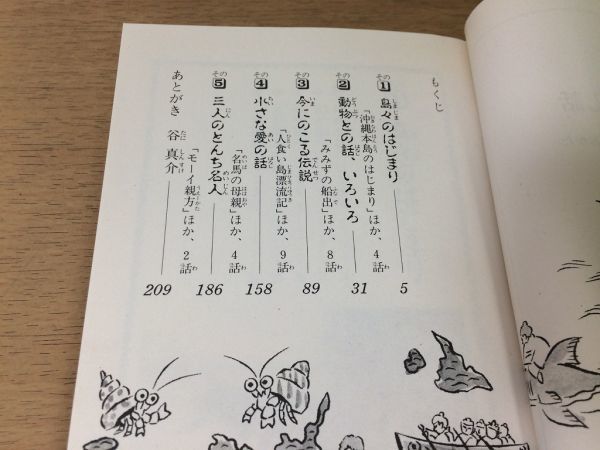 もくじ
その1 島々のはじまり 5
「沖縄本島のはじまり」ほか、4話
その2 動物との話、いろいろ 31
「みみずの船出」ほか、8話
その3 今にのこる伝説 89
「人食い島漂流記」ほか、9話
その4 小さな愛の話 158
「名馬の母親」ほか、4話
その5 三人のとんち名人 186
「モーイ親方」ほか、2話
あとがき 谷真介 209